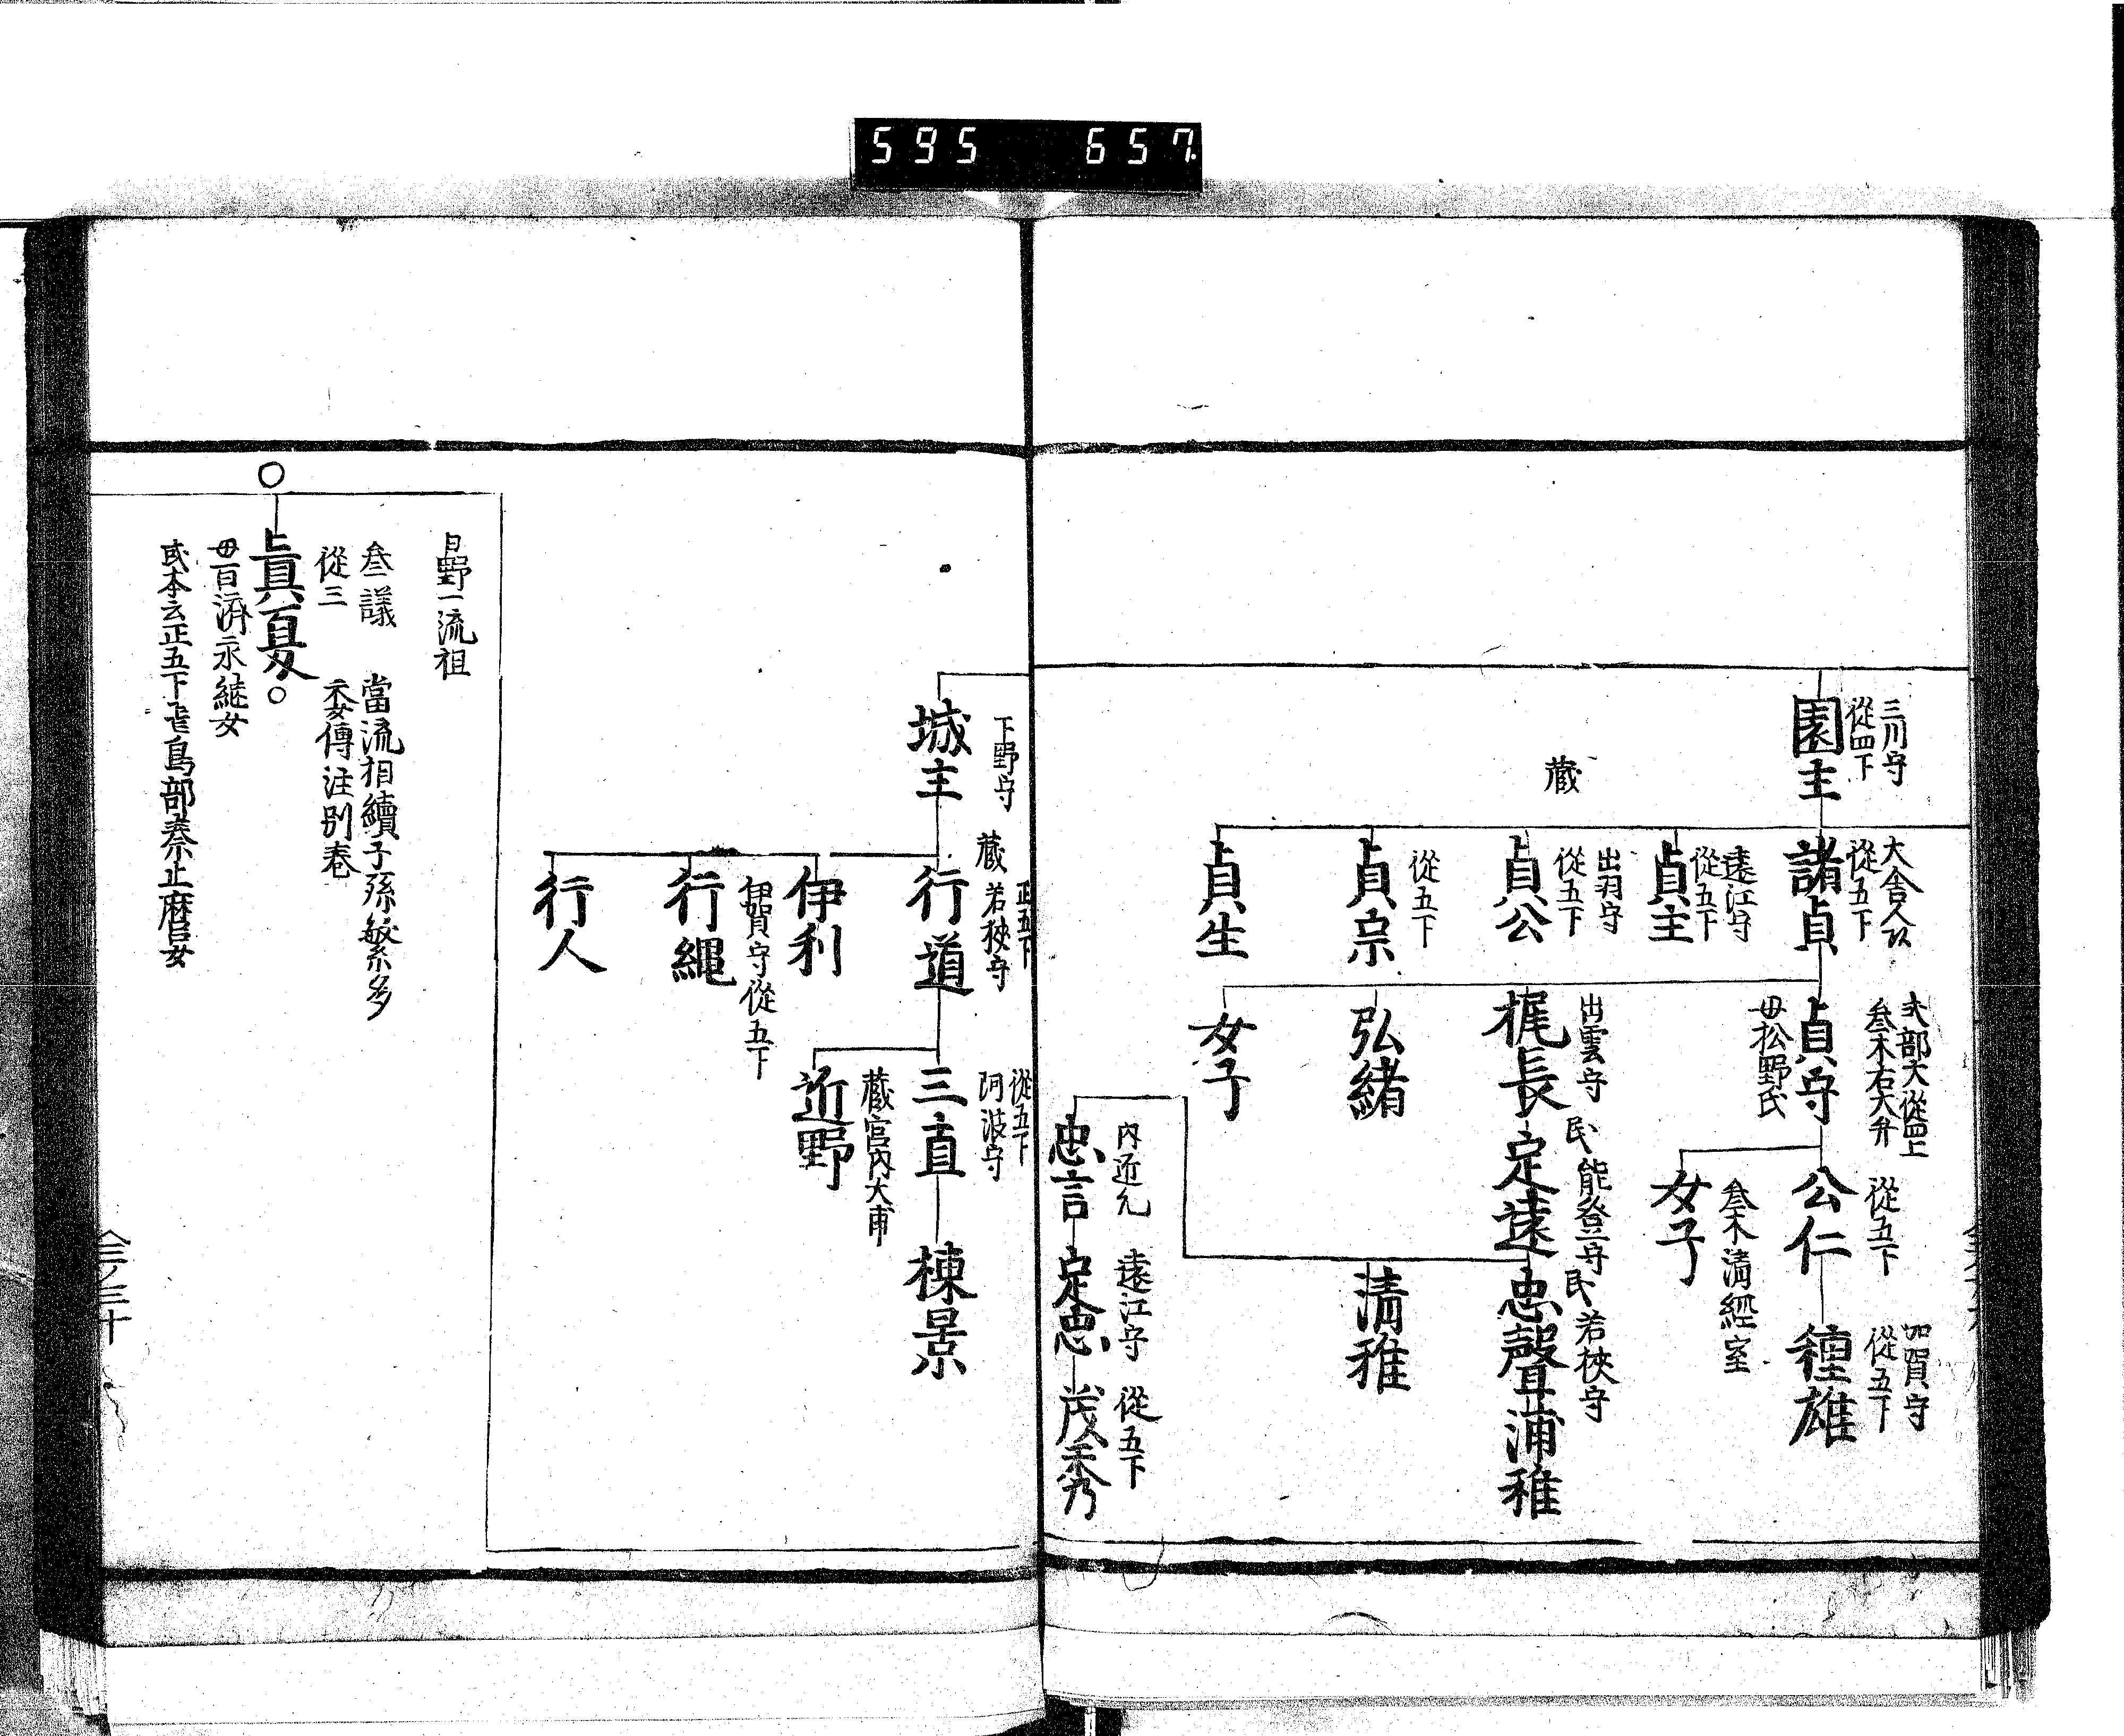 595 657
三川守
從四下
園主
大舍人頭
從五下
諸貞
式部大從四上
叅木右大弁
貞守
母松野氏
從五下
公仁
加賀守
從五下
種雄
叅木清經室
女子
遠江守
從五下
貞主
藏
出羽守
從五下
貞公
出雲守
梶長
民 能登守
定遠
民 若狹守
忠聲
浦稚
從五下
貞宗
弘緒
清稚
貞生
女子
內近允
忠言
遠江守
定忠
從五下
茂秀
下野守
城主
藏
正五下
若狹守
行道
從五下
阿波守
三直
棟景
藏宮內大甫
近野
伊利
伊賀守從五下
行繩
行人
日野一流祖
叅議
從三
當流相續子孫繁多
委傳注別卷
眞夏
母百濟永継女
或本云正五下
鳥部奈止麿女